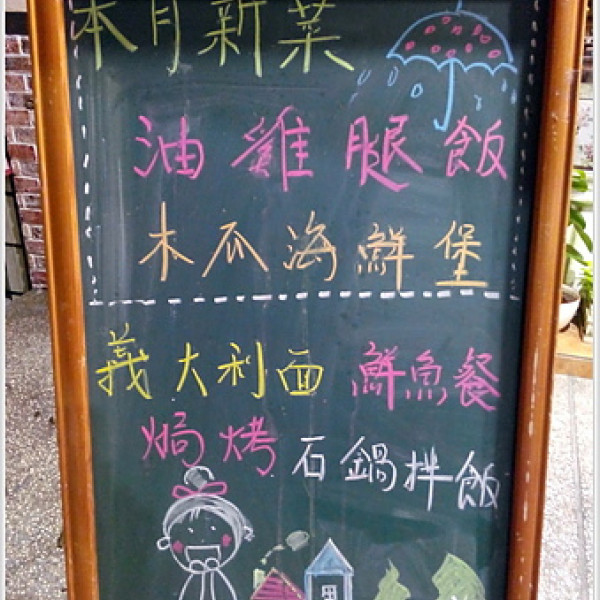 本月新菜
油雞腿飯
木瓜海鮮堡
義大利面 鮮魚餐
焗烤 石鍋拌飯